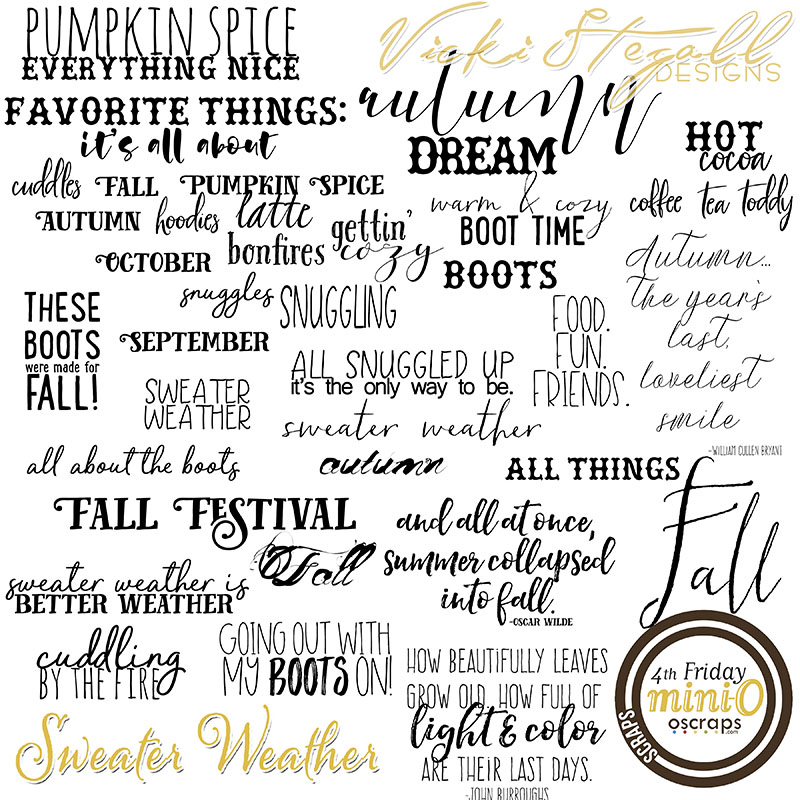 PUMPKIN SPICE
EVERYTHING NICE
Vicki Stegall
DESIGNS
FAVORITE THINGS:
it's all about
autumn
DREAM
HOT
cocoa
cuddles FALL PUMPKIN SPICE
AUTUMN hoodies latte
OCTOBER bonfires
gettin'
cozy
warm & cozy
BOOT TIME
BOOTS
coffee tea toddy
Autumn...
the year's
last,
loveliest
smile
-WILLIAM CULLEN BRYANT
THESE
BOOTS
were made for
FALL!
snuggles
SNUGGLING
SEPTEMBER
FOOD.
FUN.
FRIENDS.
SWEATER
WEATHER
ALL SNUGGLED UP
it's the only way to be.
sweater weather
all about the boots
autumn
ALL THINGS
Fall
FALL FESTIVAL
Fall
and all at once,
summer collapsed
into fall.
-OSCAR WILDE
sweater weather is
BETTER WEATHER
cuddling
BY THE FIRE
GOING OUT WITH
MY BOOTS ON!
HOW BEAUTIFULLY LEAVES
GROW OLD. HOW FULL OF
light & color
ARE THEIR LAST DAYS.
-JOHN BURROUGHS
Sweater Weather
4th Friday
mini-O
oscraps
.com
SCRAPS